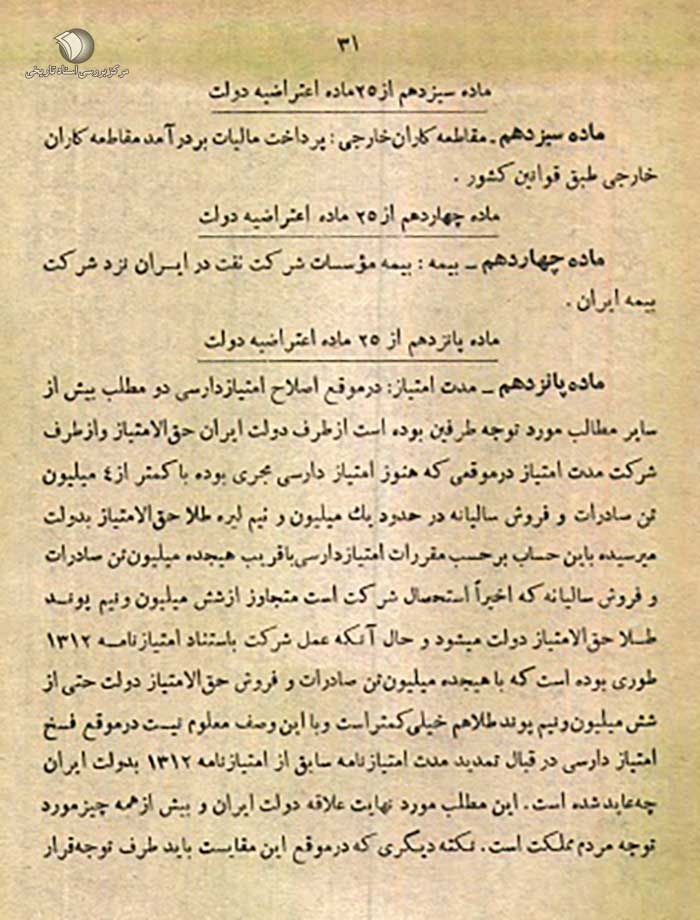 ۳۱
مرکز بررسی اسناد تاریخی
ماده سیزدهم از ۲۵ ماده اعتراضیه دولت
ماده سیزدهم ـ مقاطعه کاران خارجی : پرداخت مالیات بر درآمد مقاطعه کاران
خارجی طبق قوانین کشور .
ماده چهاردهم از ۲۵ ماده اعتراضیه دولت
ماده چهاردهم ـ بیمه : بیمه مؤسسات شرکت نفت در ایران نزد شرکت
بیمه ایران .
ماده پانزدهم از ۲۵ ماده اعتراضیه دولت
ماده پانزدهم ـ مدت امتیاز: درموقع اصلاح امتیازدارسی دو مطلب بیش از
سایر مطالب مورد توجه طرفین بوده است ازطرف دولت ایران حق‌الامتیاز وازطرف
شرکت مدت امتیاز درموقعی که هنوز امتیاز دارسی مجری بوده با کمتر از ٤ میلیون
تن صادرات و فروش سالیانه در حدود یك میلیون و نیم لیره طلا حق‌الامتیاز بدولت
میرسیده باین حساب برحسب مقررات امتیازدارسی باقریب هیجده میلیون تن صادرات
و فروش سالیانه که اخیراً استحصال شرکت است متجاوز ازشش میلیون ونیم پوند
طلا حق‌الامتیاز دولت میشود و حال آنکه عمل شرکت باستناد امتیازنامه ۱۳۱۲
طوری بوده است که با هیجده میلیون تن صادرات و فروش حق‌الامتیاز دولت حتی از
شش میلیون ونیم پوند طلاهم خیلی کمتر است و با این وصف معلوم نیست درموقع فسخ
امتیاز دارسی در قبال تمدید مدت امتیازنامه سابق از امتیازنامه ۱۳۱۲ بدولت ایران
چه عاید شده است . این مطلب مورد نهایت علاقه دولت ایران و بیش ازهمه چیز مورد
توجه مردم مملکت است . نکته دیگری که درموقع این مقایست باید طرف توجه قرار